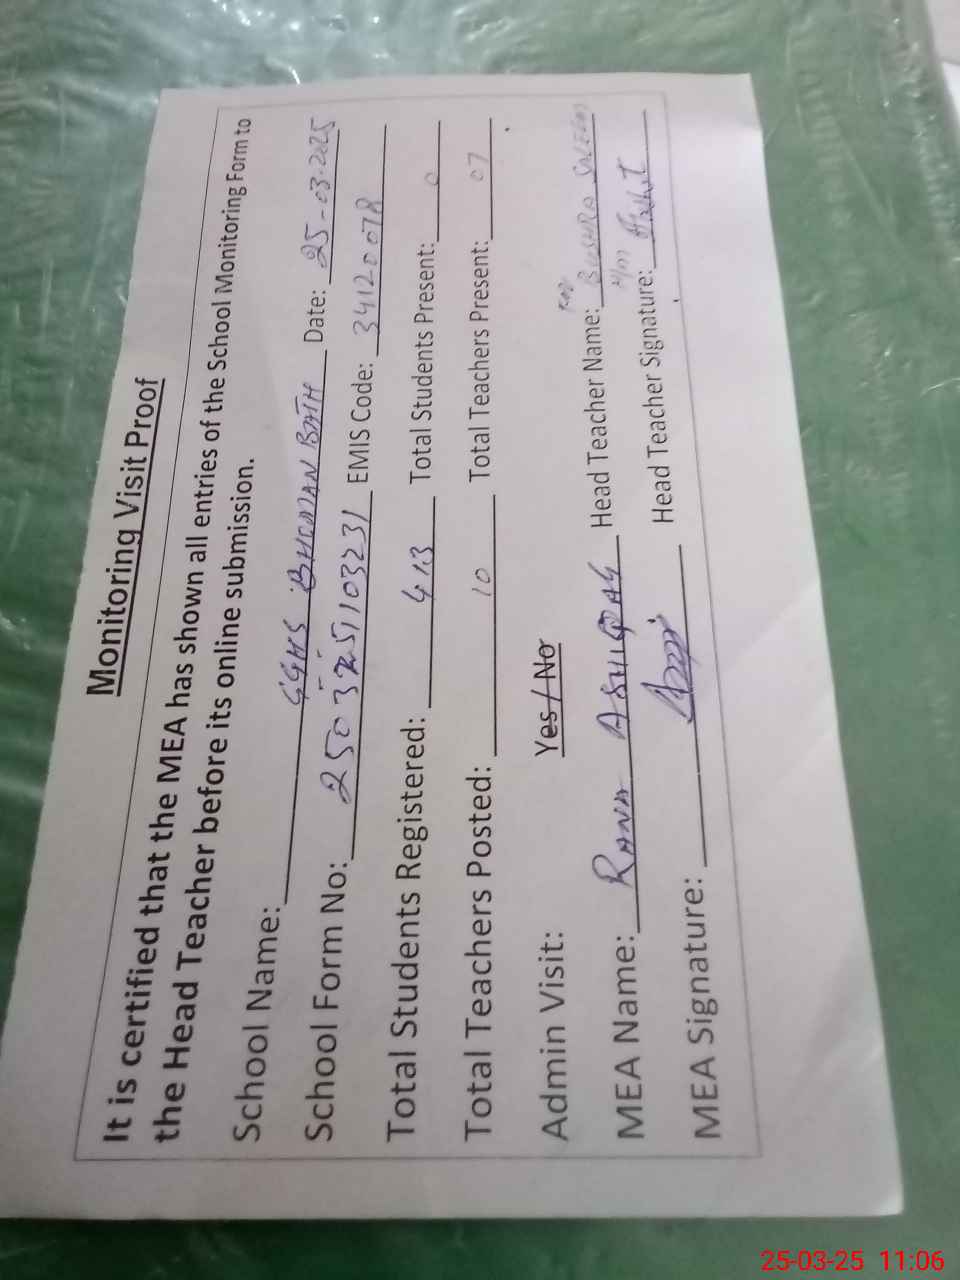 Monitoring Visit Proof
It is certified that the MEA has shown all entries of the School Monitoring Form to
the Head Teacher before its online submission.
School Name: GGHS BHOMAN BATH Date: 25-03-2025
School Form No: EMIS Code: 34120078
Total Students Registered: 413 Total Students Present: 0
Total Teachers Posted: 10 Total Teachers Present: 07
Admin Visit: Yes / No
MEA Name: RANA ASHFAQ Head Teacher Name: BUSHRA SALEEM
MEA Signature: Head Teacher Signature:
25-03-25 11:06